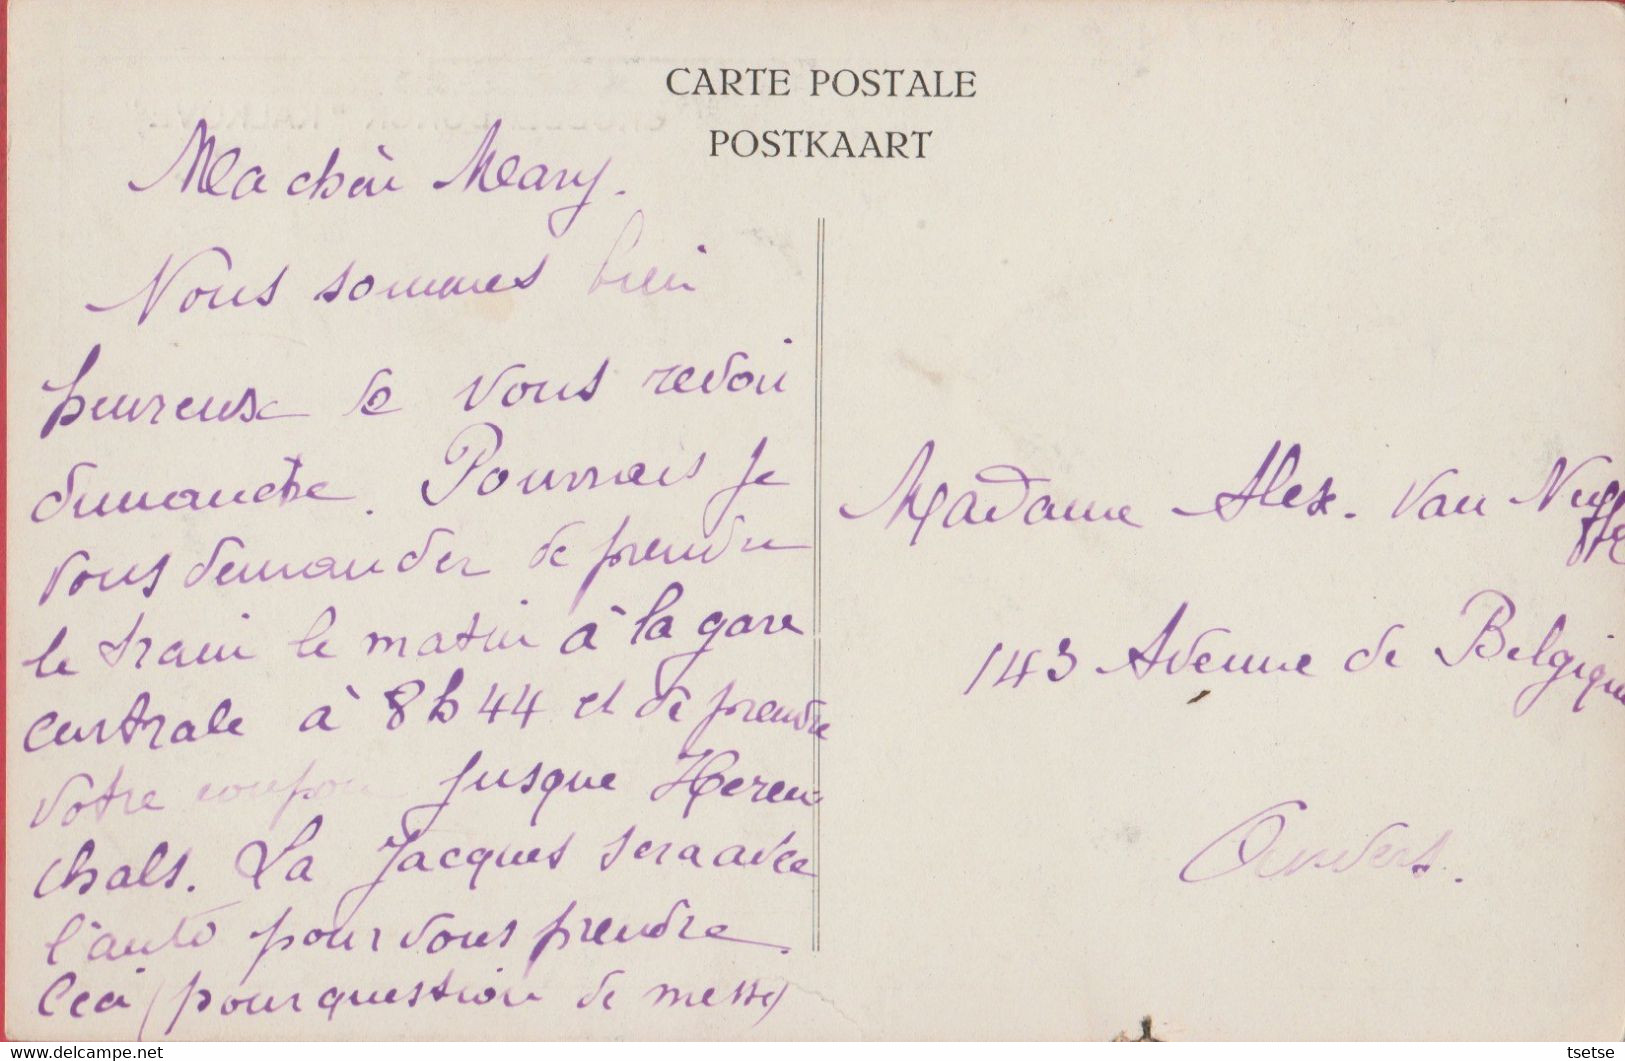 CARTE POSTALE
POSTKAART
Ma chère Mary.
Nous sommes bien
heureux de vous revoir
dimanche. Pourrais je
vous demander de prendre
le train le matin à la gare
centrale à 8h44 et de prendre
votre coupon jusque Heren-
thals. La Jacques sera avec
l'auto pour vous prendre.
Ceci (pour question de messe)
Madame Alex. Van Nuffe
143 Avenue de Belgique
Anvers.
tsetse
www.delcampe.net